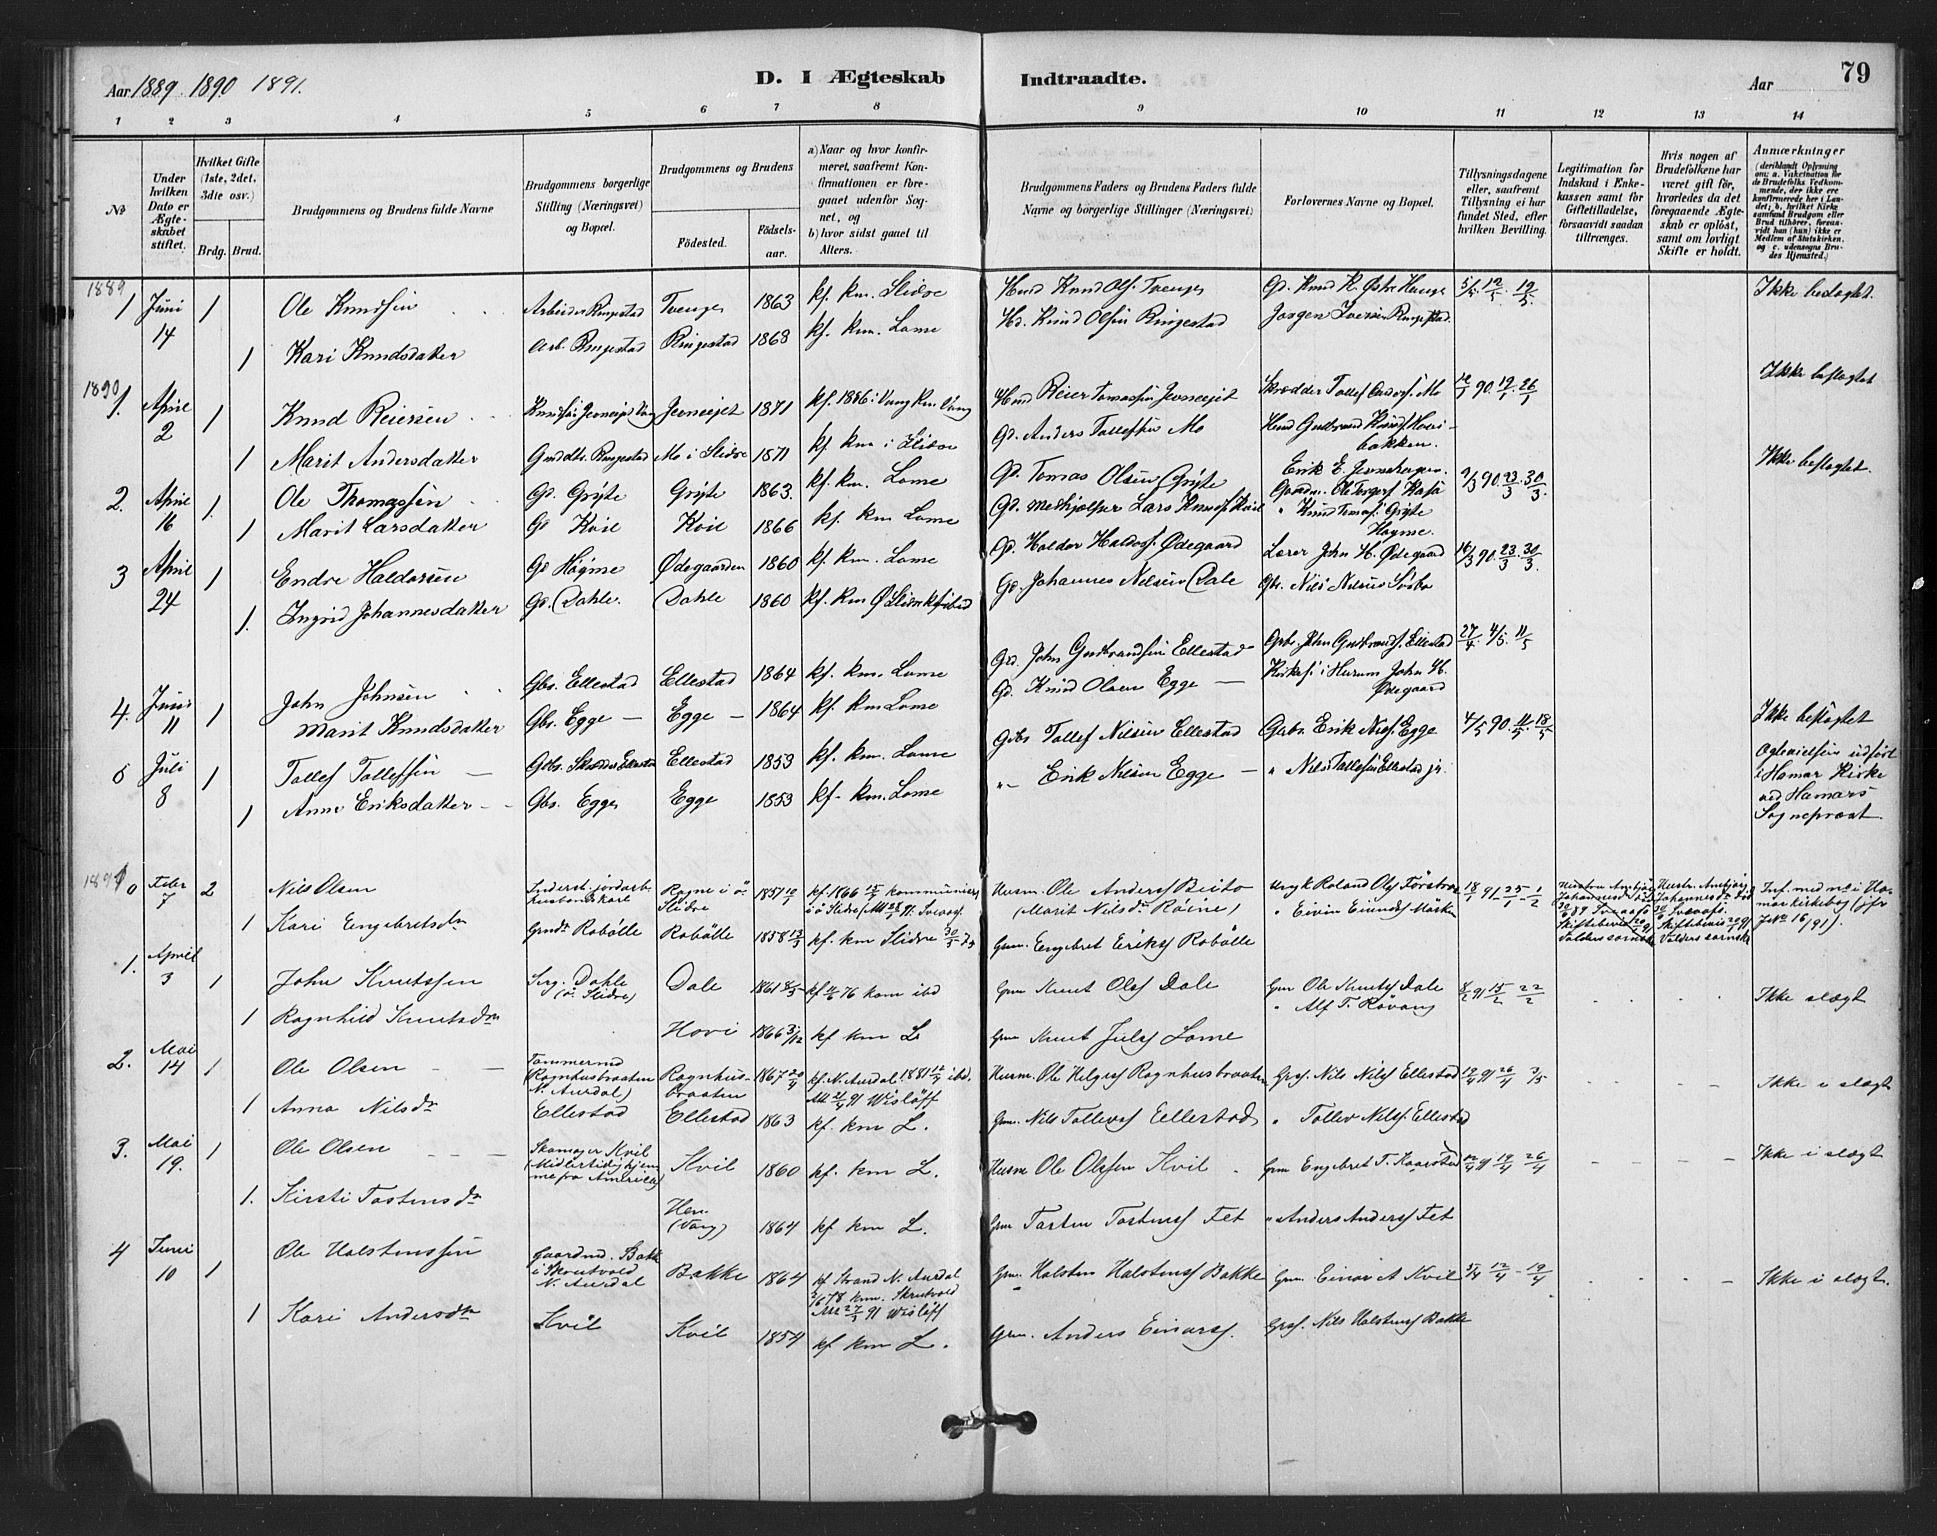 Aar 1889 1890 1891.
D. I Ægteskab Indtraadte.
Aar
79
1 2 3 4 5 6 7 8 9 10 11 12 13 14
№
Under hvilken Dato er Ægteskabet stiftet.
Hvilket Gifte (1ste, 2det, 3die osv.)
Brdg. Brud.
Brudgommens og Brudens fulde Navne
Brudgommens borgerlige Stilling (Næringsvei) og Bopæl.
Brudgommens og Brudens
Fødested.
Fødselsaar.
a) Naar og hvor konfirmeret, saafremt Konfirmationen er foregaaet udenfor Sognet, og
b) hvor sidst gaaet til Alters.
Brudgommens Faders og Brudens Faders fulde Navne og borgerlige Stillinger (Næringsvei)
Forlovernes Navne og Bopæl.
Tillysningsdagene eller, saafremt Tillysning ei har fundet Sted, efter hvilken Bevilling.
Legitimation for Indskud i Enkekassen samt for Giftetilladelse, forsaavidt saadan tiltrænges.
Hvis nogen af Brudefolkene har været gift før, hvorledes da det foregaaende Ægteskab er opløst, samt om lovligt Skifte er holdt.
Anmærkninger
(deriblandt Oplysning om: a. Vakcination for de Brudefolks Vedkommende, der ikke ere konfirmerede her i Landet; b. hvilket Kirkesamfund Brudgom eller Brud tilhører, forsaavidt han (hun) ikke er Medlem af Statskirken, og c. udensogns Brudes Hjemsted.)
1889
1 Juni 14 1 Ole Knudsen Arbeider Ringestad Tvenge 1863 kf. km. Slidre Hmd Knud Ols. Tvenge Gd. Knud K. Østre Hauge 5/5 12/5 19/5 Ikke beslægtet.
1 Kari Knudsdatter Arb. Ringestad Ringestad 1868 kf. km. Lome Hd. Knud Olsen Ringestad Jørgen Iversen Ringestad.
1890
1. April 2 1 Knud Reiersen Jevneiet 1871 kf. 1886 i Vang km. Vang Hmd Reier Tomassen Jevneiet Skrædder Tollef Anders. Mo 12/1 90. 19/1 26/1 Ikke beslægtet
1 Marit Andersdatter Gmddtr. Ringestad Mo i Slidre 1871 kf. km. i Slidre Gd. Anders Tollefsen Mo Hmd Gudbrand Knuds. Hovibakken.
2. April 16 1. Ole Thomassen Gd. Grÿte Grÿte 1863. kf. km. Lome Gd. Tomas Olsen Grÿte Erik E. 9/3 90. 23/3. 30/3. Ikke beslægtet.
1 Marit Larsdatter Gd Kvil Kvil 1866 kf. km Lome Gd. Medhjælper Lars Knuds. Kvil Knud Tomas. Grÿte
3 April 24 1 Endre Haldorsen Gd Høgme Ødegaarden 1860 kf. km. Lome Gd. Haldor Haldors. Ødegaard Lærer John H. Ødegaard 16/3 90. 23/3 30/3.
1. Ingrid Johannesdatter Gd. Dahle. Dahle 1860 kf. km Ø Slidre Gd. Johannes Nilsen Dale Gbr. Nils Nilsen
4. Juni 11 1 John Johnsen Gbs. Ellestad Ellestad 1864 kf. km. Lome Gd. John Gudbrandsen Ellestad Gbs. John Gudbrands. Ellestad 27/4. 4/5. 11/5
Marit Knudsdatter Gbs. Egge Egge 1864 kf. km Lome Gd. Knud Olsen Egge Kirkes. i Hurum John H. Ødegaard
5 Juli 8 1 Tollef Tollefsen Ellestad 1853 kf. km. Lome Gbs Tollef Nilsen Ellestad Gbs. Erik Nils. Egge 4/5 90. 11/5. 18/5 Ikke beslægtet
1 Anne Eriksdatter Gbs. Egge Egge 1853 kf. km. Lome Erik Nilsen Egge Nils Tollefsen Ellestad jr. Ogsvielsen udført i Hamar Kirke ved Hamars Sognepræst.
1891
0 Febr 7 2 Nils Olsen Rogne i ö. Slidre kf. 1866 Husm. Ole Anders. Beito (Marit Nilsdr Röine) 18/1 91 - 25/1 - 1/2
1 Kari Engebretsdr Grmdr Robölle Robölle 1858 13/3 kf. km Slidre Grm. Engebret Eriks. Robölle Eivin Eivinds.
1. April 3 1 John Knutssen Serg. Dahle (ö. Slidre) Dale 1861 kf 76 kom ibd Grm Knut Ols. Dale Grm Ole Knuts. Dale 8/2 91 15/2 22/2 Ikke slægt
1 Ragnhild Knutsdr Hovi 1866 3/12 kf km L Grm Knut Juls. Lome Alf T. Røvang
2. Mai 14 1 Ole Olsen Tømmermd Ragnhusbraaten N. Aurdal) Ragnhusbraaten 1867 20/4 kf. N. Aurdal. 1881 ibd. 91 Wisløff Husm. Ole Helges. Ragnhusbraaten Grs. Nils Nils. Ellestad 19/4 91 26/4 3/5 Ikke i slægt
1 Anna Nilsdr Ellestad Ellestad 1863 kf. km L. Grm. Nils Tollevs. Ellestad Tollev Nils. Ellestad
3. Mai 19. 1 Ole Olsen Skomager Kvil (Midlertidig hjemme fra Amerika) Kvil 1860 kf. km L. Husm Ole Olssen Kvil Grm Engebret T. Kaarstad 12/4 91 19/4 26/4 Ikke i slægt
1. Kirsti Tostensdr Hen (Vang) 1864 kf km L. Grm Tosten Tostens. Fet Anders Anders. Fet
4 Juni 10 1 Ole Halstenssen Gaardmd. Bakke i Skrutvold N. Aurdal Bakke 1864 kf Strand N. Aurdal 78 kom. Skrutvold 91 Wisløff Grm. Halsten Halstens. Bakke Grm. Einar A Kvil 5/4 12/4 - 19/4 Ikke i slægt.
1 Kari Andersdr Kvil Kvil 1854 kf km L. Grm. Anders Einars. Grs. Nils Halstens. Bakke